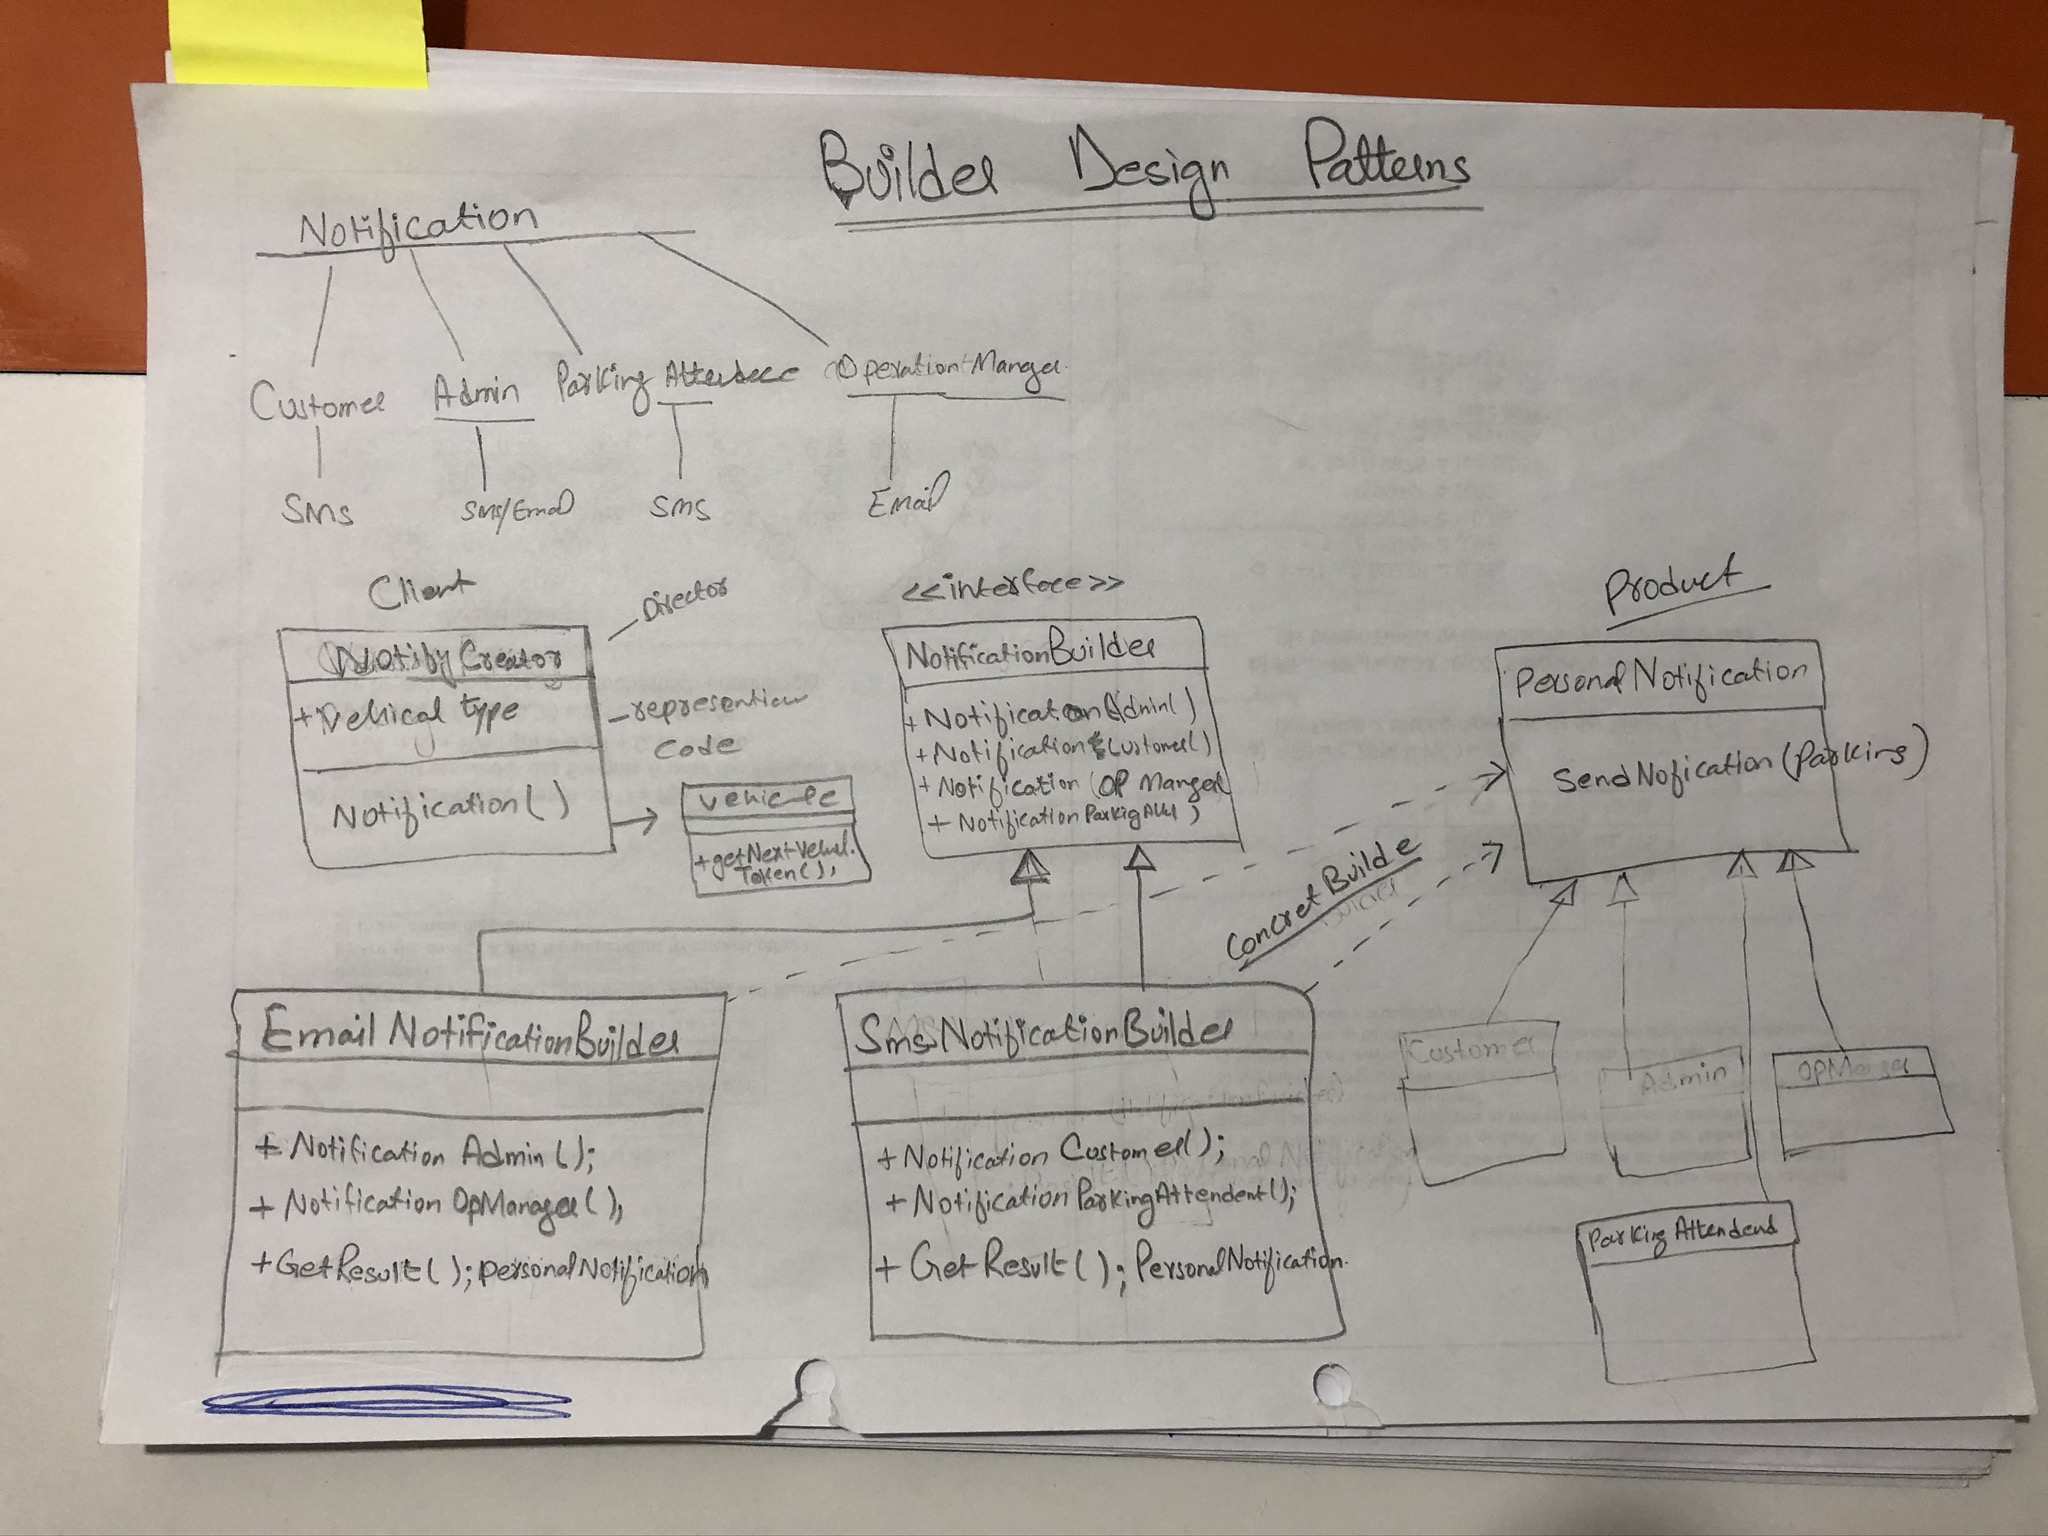 Builder Design Patterns
Notification
Customer Admin Parking Operation Manger
SMS SMS/Email SMS Email
Client
Director
Notify Creator
+ Vehical type
Notification()
representiion
code
Vehicle
+getNextVehicl.
Token();
<<interface>>
NotificationBuilder
+ NotificationAdmin()
+ Notification Customer()
+ Notification (OP Manger)
+ Notification
Product
PersonalNotification
SendNofication(Parking)
Concret Builde
Email NotificationBuilder
+ Notification Admin();
+ Notification OpManager();
+GetResult(); personalNotification
SmsNotificationBuilder
+ Notification Customer();
+ Notification ParkingAttendent();
+ GetResult(); PersonalNotification.
Customer
Admin
OPManger
Parking Attendend